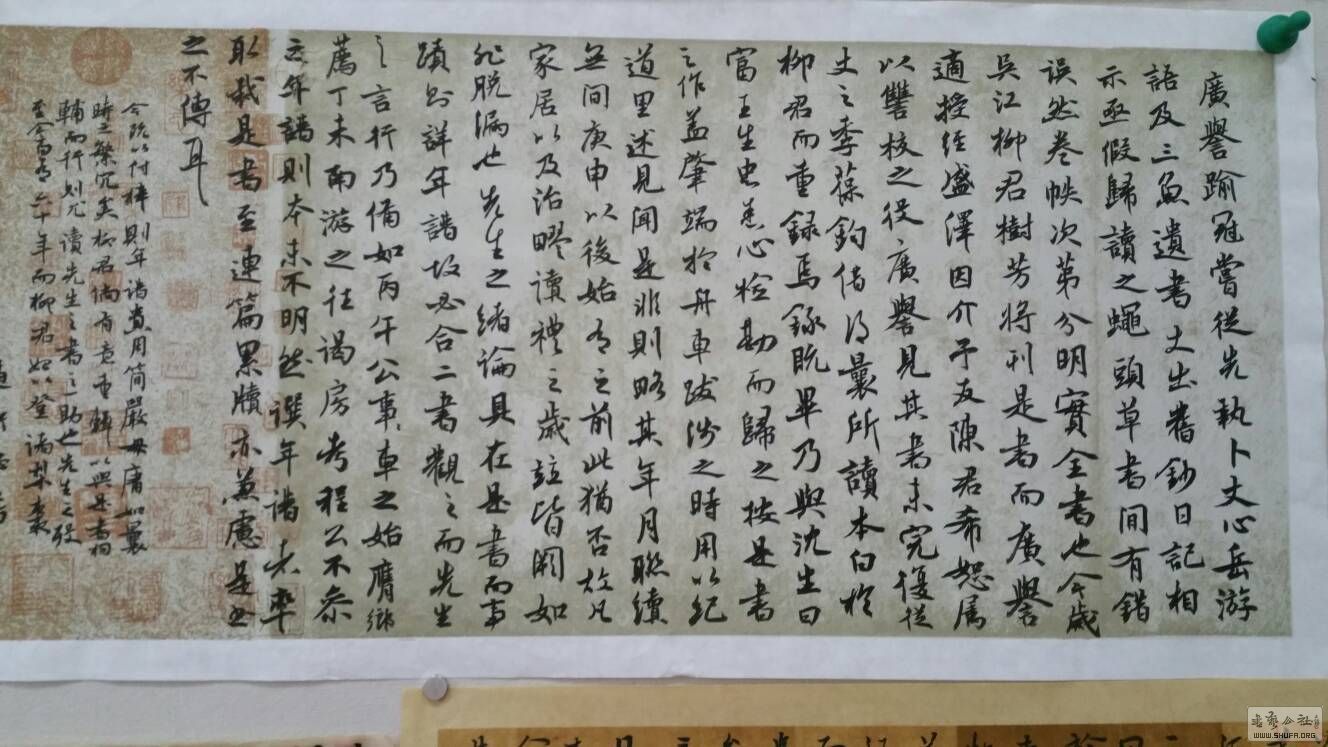 廣譽踰冠嘗從先執卜丈心岳游
語及三魚遺書丈出舊鈔日記相
示亟假歸讀之蠅頭草書間有錯
误然卷帙次第分明實全書也今歲
吳江柳君樹芳將刊是書而廣譽
適授經盛澤因介予友陳君希恕属
以讐校之役廣譽見其書未完復從
丈之季葆鈞借得曩所讀本白於
柳君而重録焉録既畢乃與沈生曰
富王生忠悉心檢勘而歸之按是書
之作益肇端於舟車跋涉之時用以紀
道里述見聞是非則略其年月聯續
無间庚申以後始有之前此猶否故凡
家居以及治嘐讀禮之歲竝皆闕如
非脱漏也先生之绪論具在是書而事
蹟於詳年譜故必合二書觀之而先生
之言行乃備如丙午公車之始膺鄉
薦丁未南游之往谒房考程公不參
之年譜則本末不明然譔年譜者率
取我是書至連篇累牘亦兼慮是書
之不傳耳
今既以付梓則年譜貴用简嚴毋庸如曩
時之繁冗矣柳君倘有意重輯以與是書相
輔而行則尤讀先生之書之一助也先生之殁
至今百有六十年而柳君始以登諸梨棗
書藝公社
WWW.SHUFA.ORG